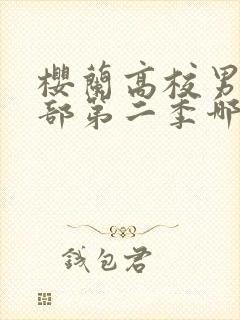 櫻蘭高校男
部第二季哪
錢包君